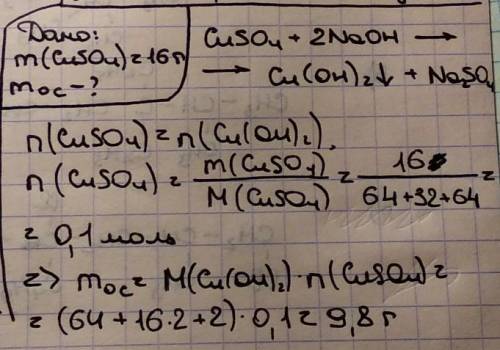 Дано:
m(CuSO4) = 16 г
mос - ?
CuSO4 + 2NaOH →
→ Cu(OH)2↓ + Na2SO4
n(CuSO4) = n(Cu(OH)2),
n(CuSO4) = m(CuSO4) / M(CuSO4) = 16 / 64+32+64 =
= 0,1 моль
=> mос = M(Cu(OH)2) · n(CuSO4) =
= (64 + 16·2 + 2) · 0,1 = 9,8 г